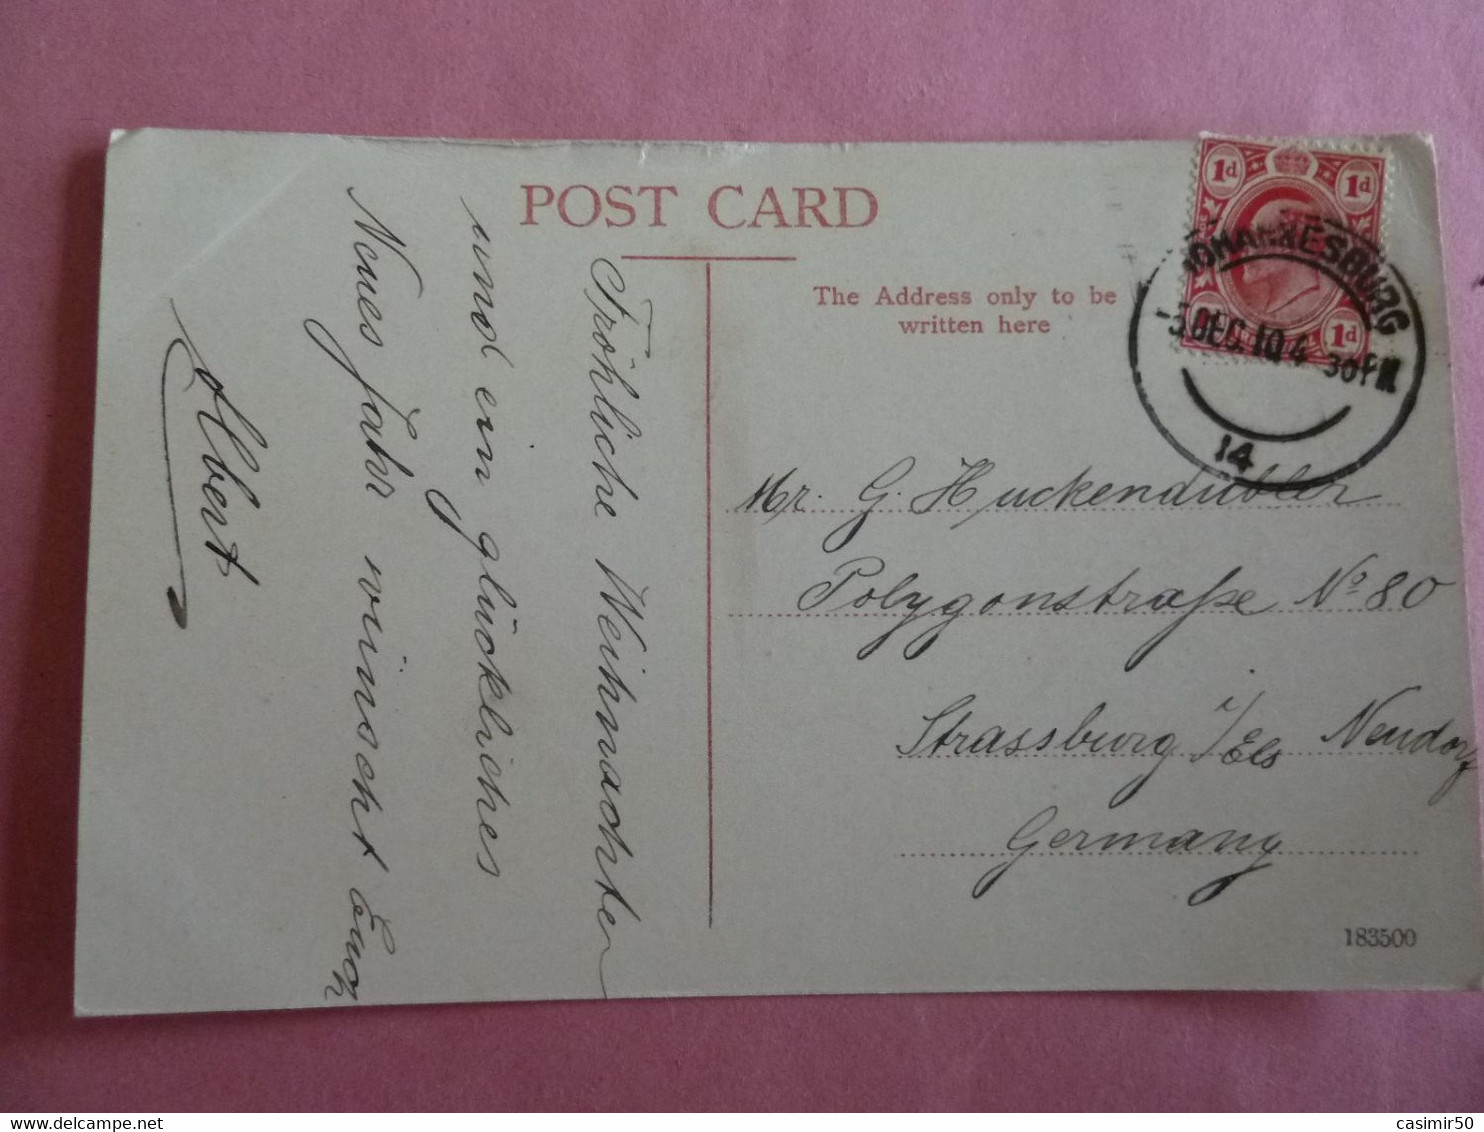 POST CARD
The Address only to be
written here
Fröhliche Weihnachten
und ein glückliches
Neues Jahr wünscht Euch
Albert
1d 1d
1d
JOHANNESBURG
-3 DEC. 10 4 30 PM
14
Mr. G. Huckendubler
Polygonstraße No 80
Strassburg i/Els Neudorf
Germany
183500
delcampe.net
casimir50